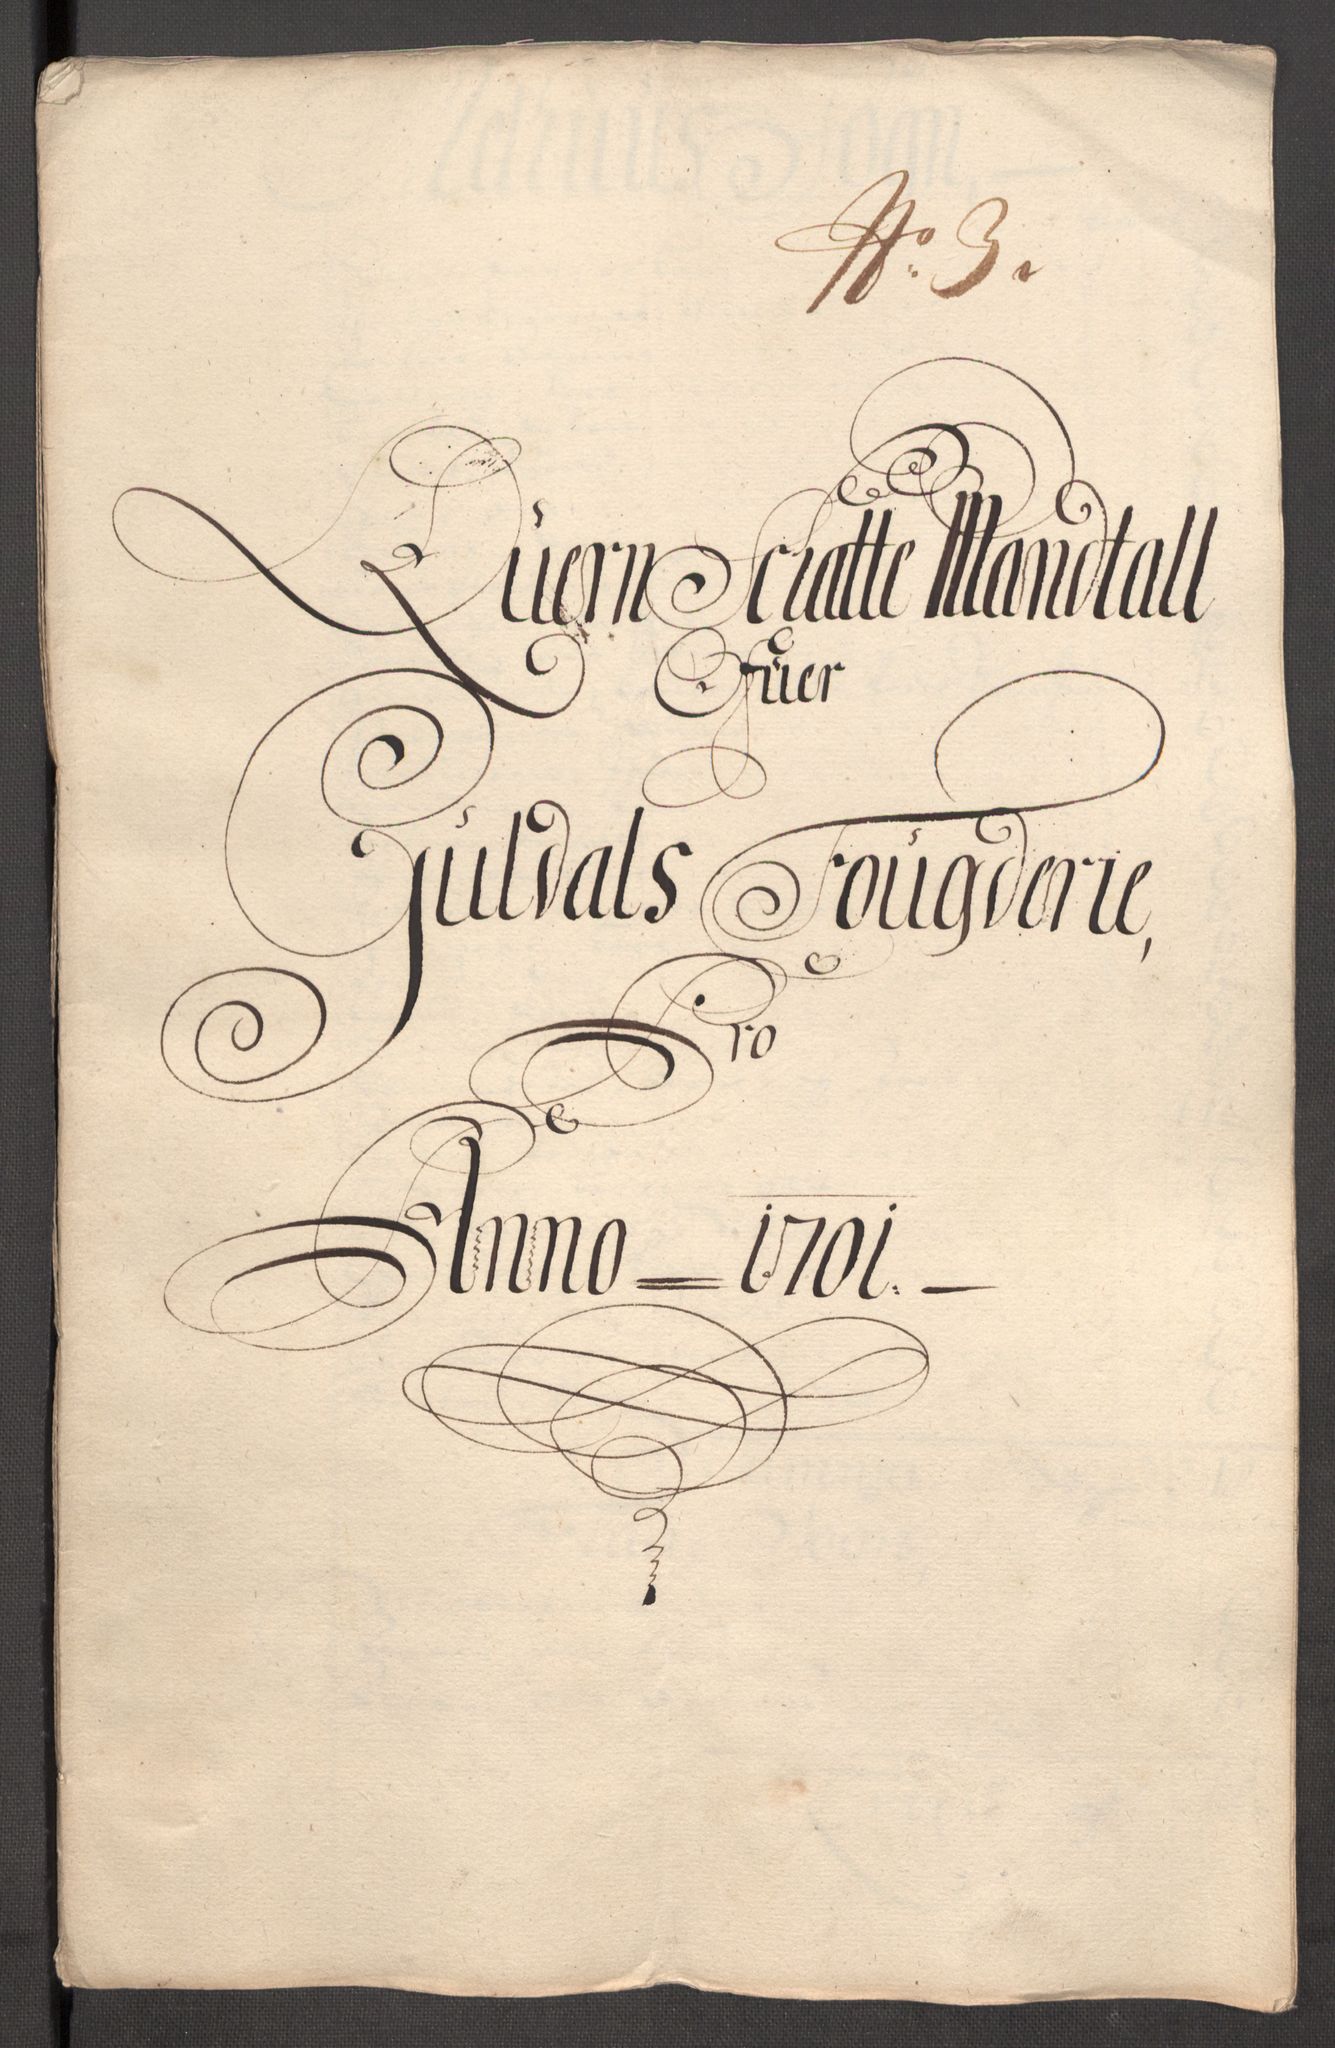 No: 3.
Quern Schatte Mandtall
Ofuer
Guldals Fougderie,
Pro
Anno 1701.